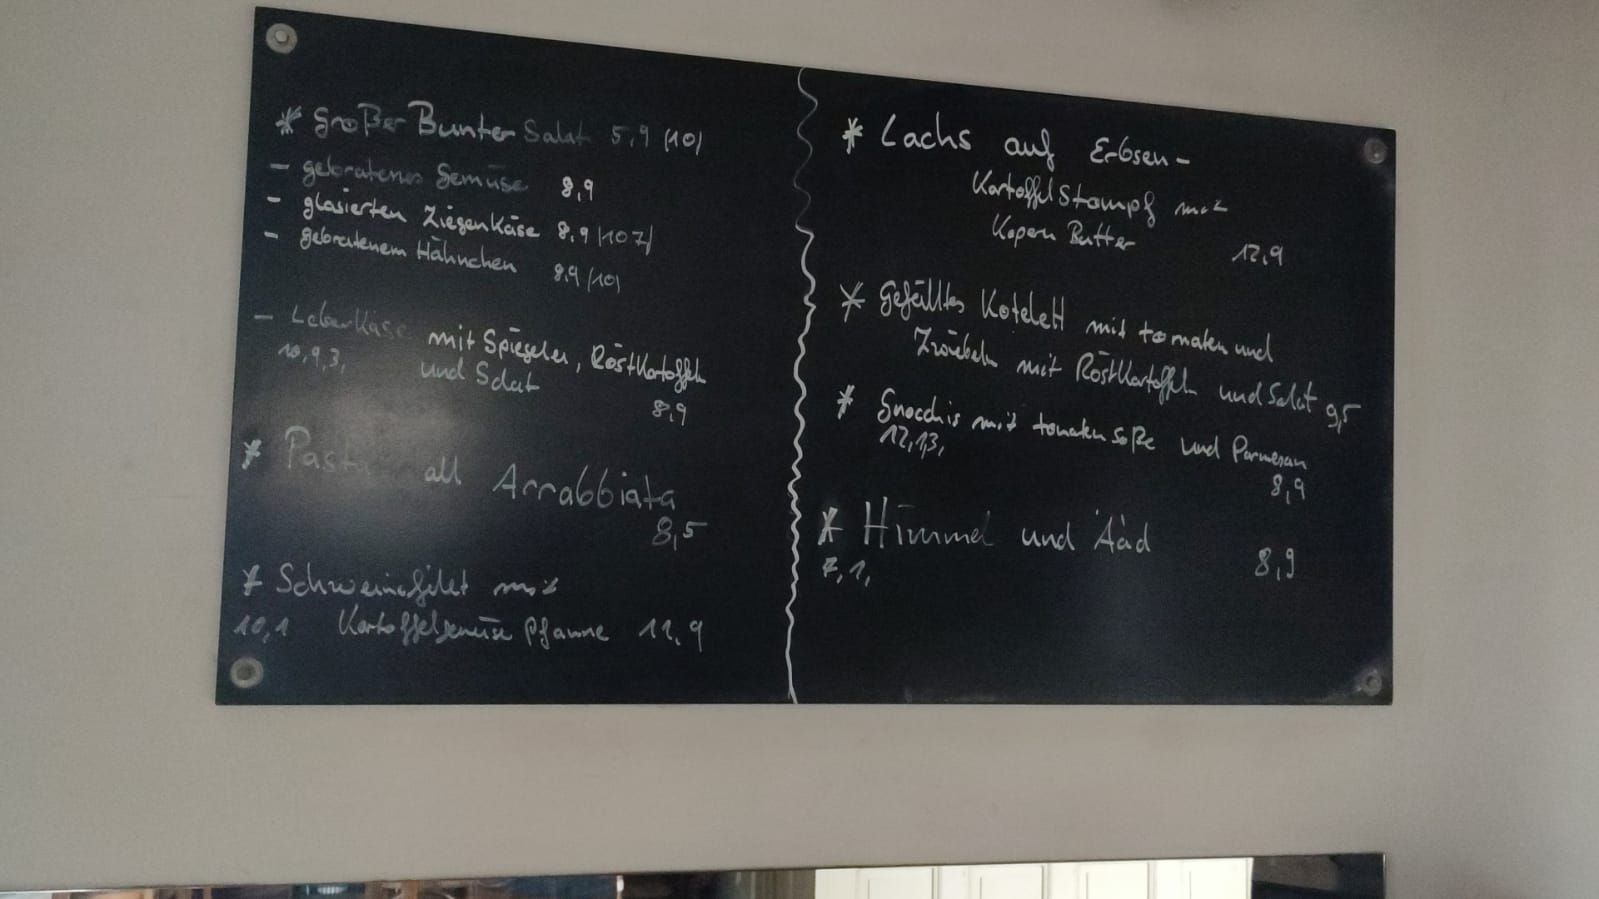 * Großer Bunter Salat 5,9 (10)
- gebratenes Gemüse 8,9
- glasierten Ziegenkäse 8,9 (10 7)
- gebratenem Hähnchen 8,9 (10)
- Leberkäse mit Spiegelei, Röstkartoffeln
10,9,3, und Salat
8,9
* Pasta all Arrabbiata
8,5
* Schweinefilet mit
10,1 Kartoffelgemüse Pfanne 11,9
* Lachs auf Erbsen-
Kartoffelstampf mit
Kapern Butter 12,9
* Gefülltes Kotelett mit tomaten und
Zwiebeln mit Röstkartoffeln und Salat 9,5
* Gnocchis mit tomaten soße und Parmesan
12,13, 8,9
* Himmel und Ääd 8,9
7,1,